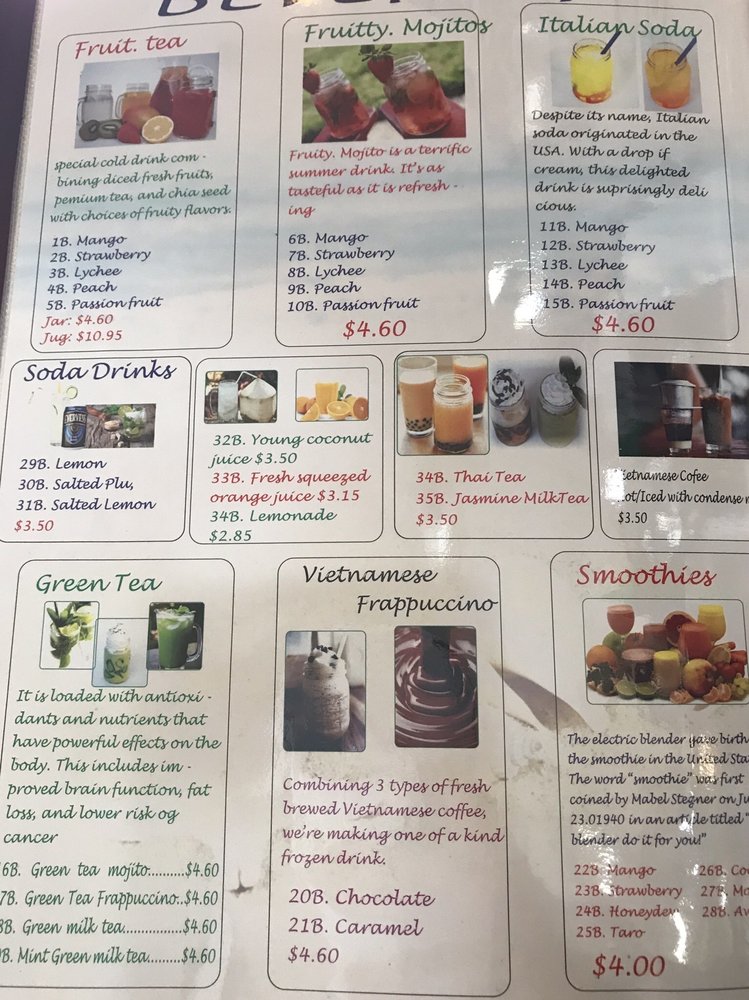 Fruit. tea
special cold drink com -
bining diced fresh fruits,
pemium tea, and chia seed
with choices of fruity flavors.
1B. Mango
2B. Strawberry
3B. Lychee
4B. Peach
5B. Passion fruit
Jar: $4.60
Jug: $10.95
Fruitty. Mojitos
Fruity. Mojito is a terrific
summer drink. It's as
tasteful as it is refresh -
ing
6B. Mango
7B. Strawberry
8B. Lychee
9B. Peach
10B. Passion fruit
$4.60
Italian Soda
Despite its name, Italian
soda originated in the
USA. With a drop if
cream, this delighted
drink is suprisingly deli
cious.
11B. Mango
12B. Strawberry
13B. Lychee
14B. Peach
15B. Passion fruit
$4.60
Soda Drinks
29B. Lemon
30B. Salted Plu,
31B. Salted Lemon
$3.50
32B. Young coconut
juice $3.50
33B. Fresh squeezed
orange juice $3.15
34B. Lemonade
$2.85
34B. Thai Tea
35B. Jasmine MilkTea
$3.50
Vietnamese Cofee
Hot/Iced with condense
$3.50
Green Tea
It is loaded with antioxi -
dants and nutrients that
have powerful effects on the
body. This includes im -
proved brain function, fat
loss, and lower risk og
cancer
6B. Green tea mojito..........$4.60
7B. Green Tea Frappuccino..$4.60
8B. Green milk tea................$4.60
B. Mint Green milk tea.........$4.60
Vietnamese
Frappuccino
Combining 3 types of fresh
brewed Vietnamese coffee,
we're making one of a kind
frozen drink.
20B. Chocolate
21B. Caramel
$4.60
Smoothies
The electric blender gave birth
the smoothie in the United Sta
The word "smoothie" was first
coined by Mabel Stegner on Ju
23.01940 in an article titled "
blender do it for you!"
22B. Mango 26B. Co
23B. Strawberry 27B. Ma
24B. Honeydew 28B. Av
25B. Taro
$4.00